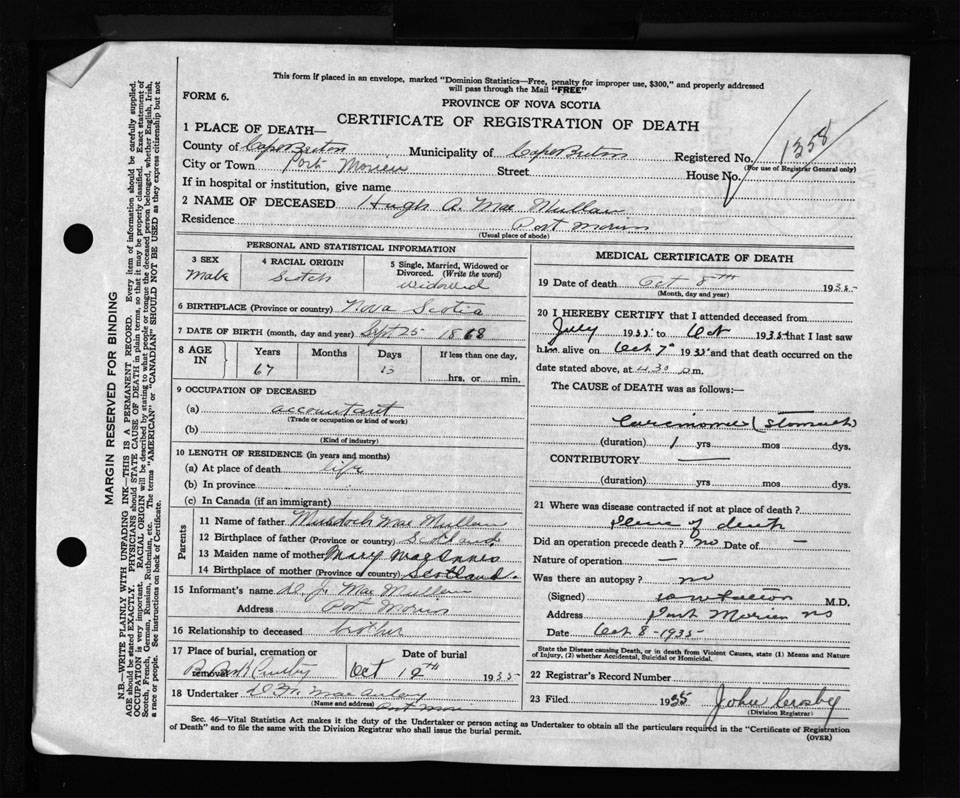 This form if placed in an envelope, marked "Dominion Statistics—Free, penalty for improper use, $300," and properly addressed
will pass through the Mail "FREE"
FORM 6.
PROVINCE OF NOVA SCOTIA
CERTIFICATE OF REGISTRATION OF DEATH
1 PLACE OF DEATH—
County of Cape Breton Municipality of Cape Breton Registered No. 1358
(For use of Registrar General only)
City or Town Port Morien Street House No.
If in hospital or institution, give name
2 NAME OF DECEASED Hugh A. Mac Mullan
Residence Port Morien
(Usual place of abode)
PERSONAL AND STATISTICAL INFORMATION
3 SEX Male
4 RACIAL ORIGIN Scotch
5 Single, Married, Widowed or Divorced. (Write the word) Widowed
6 BIRTHPLACE (Province or country) Nova Scotia
7 DATE OF BIRTH (month, day and year) Sept 25 1868
8 AGE IN Years Months Days If less than one day,
67 13 hrs. or min.
9 OCCUPATION OF DECEASED
(a) accountant
(Trade or occupation or kind of work)
(b)
(Kind of industry)
10 LENGTH OF RESIDENCE (in years and months)
(a) At place of death life
(b) In province
(c) In Canada (if an immigrant)
Parents
11 Name of father Murdoch Mac Mullan
12 Birthplace of father (Province or country) Scotland
13 Maiden name of mother Mary MacInnes
14 Birthplace of mother (Province or country) Scotland
15 Informant's name D. J. Mac Mullan
Address Port Morien
16 Relationship to deceased brother
17 Place of burial, cremation or removal
Date of burial
Oct 12th 1935
18 Undertaker
(Name and address) Port Mor
MEDICAL CERTIFICATE OF DEATH
19 Date of death Oct 8th 1935
(Month, day and year)
20 I HEREBY CERTIFY that I attended deceased from
July 1935 to Oct 1935 that I last saw
him alive on Oct 7th 1935 and that death occurred on
date stated above, at 4.30 p.m.
The CAUSE of DEATH was as follows:—
Carcinoma (Stomach
(duration) 1 yrs mos dys.
CONTRIBUTORY —
(duration) yrs mos dys.
21 Where was disease contracted if not at place of death?
place of death
Did an operation precede death? no Date of —
Nature of operation —
Was there an autopsy? no
(Signed) M.D.
Address Port Morien NS
Date Oct 8-1935-
State the Disease causing Death, or in death from Violent Causes, state (1) Means and Nature
of Injury, (2) whether Accidental, Suicidal or Homicidal.
22 Registrar's Record Number
23 Filed 1935 John Crosby
(Division Registrar)
Sec. 46—Vital Statistics Act makes it the duty of the Undertaker or person acting as Undertaker to obtain all the particulars required in the "Certificate of Registration
of Death" and to file the same with the Division Registrar who shall issue the burial permit.
(OVER)
MARGIN RESERVED FOR BINDING
N.B.—WRITE PLAINLY WITH UNFADING INK—THIS IS A PERMANENT RECORD. Every item of information should be carefully supplied.
AGE should be stated EXACTLY. PHYSICIANS should STATE CAUSE OF DEATH in plain terms, so that it may be properly classified. Exact statement of
OCCUPATION is very important. RACIAL ORIGIN will be described by stating to what people or tongue the deceased person belonged, whether English, Irish,
Scotch, French, German, Russian, Ruthenian, etc. The terms "AMERICAN" or "CANADIAN" SHOULD NOT BE USED as they express citizenship but not
a race or people. See instructions on back of Certificate.